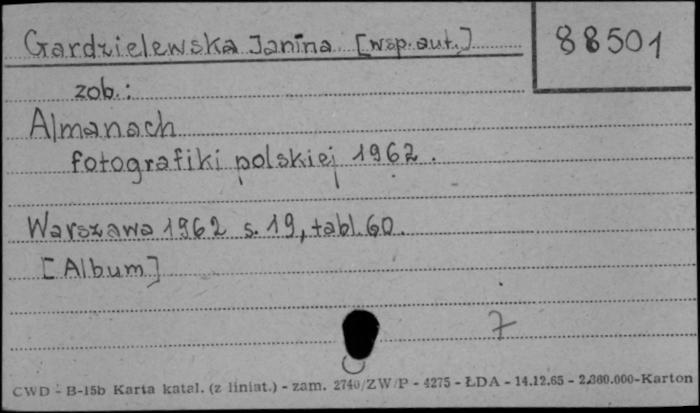 Gardzielewska Janina [wsp. aut.]
88501
zob.:
Almanach
fotografiki polskiej 1962.
Warszawa 1962 s. 19, tabl. 60.
[Album]
7
CWD - B-15b Karta katal. (z liniat.) - zam. 2740/ZW/P - 4275 - ŁDA - 14.12.65 - 2.360.000-Karton